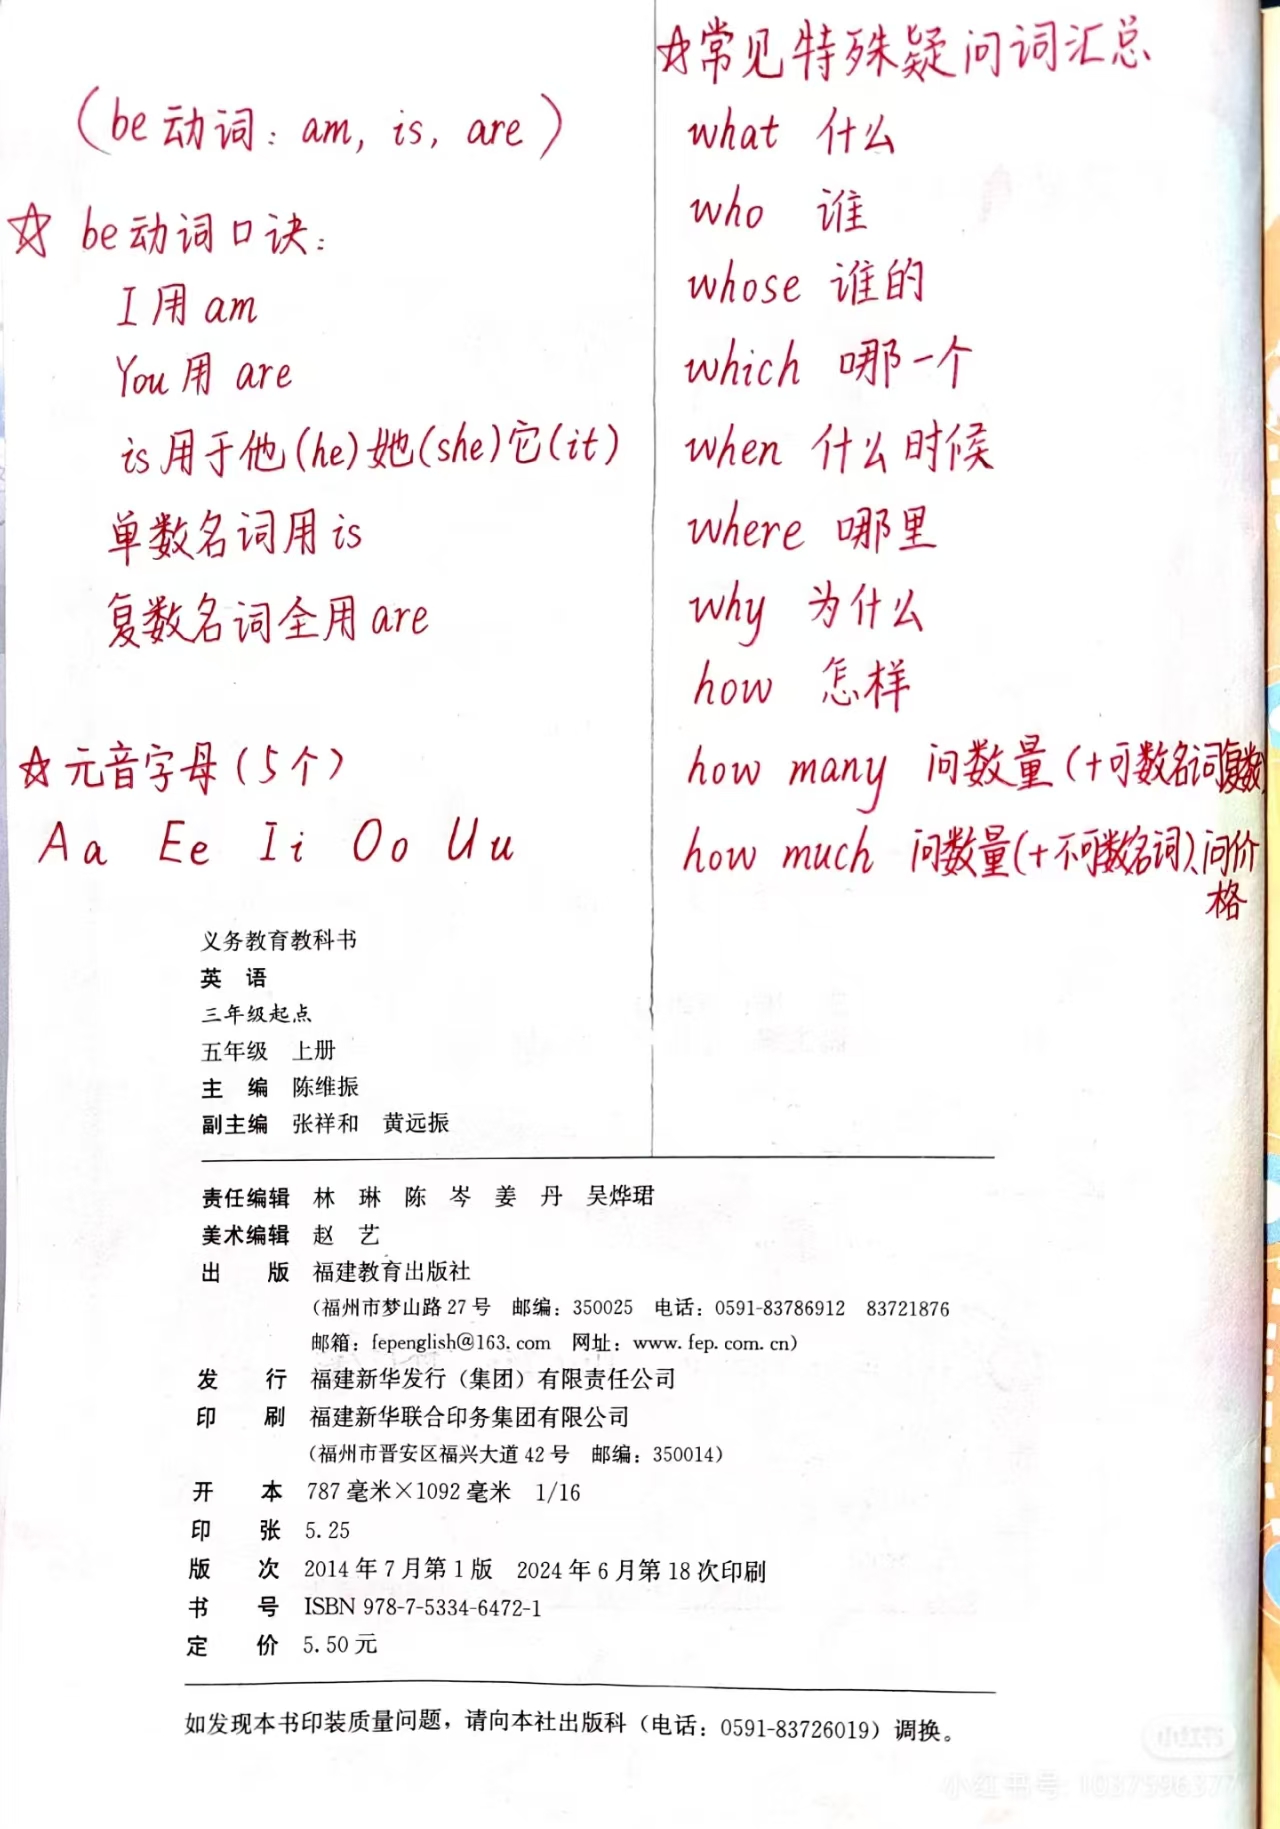 (be动词: am, is, are)
☆ be动词口诀:
I 用 am
You 用 are
is 用于他(he)她(she)它(it)
单数名词用 is
复数名词全用 are
☆ 元音字母(5个)
Aa Ee Ii Oo Uu
☆常见特殊疑问词汇总
what 什么
who 谁
whose 谁的
which 哪一个
when 什么时候
where 哪里
why 为什么
how 怎样
how many 问数量(+可数名词复数)
how much 问数量(+不可数名词)、问价
格
义务教育教科书
英 语
三年级起点
五年级 上册
主 编 陈维振
副主编 张祥和 黄远振
责任编辑 林 琳 陈 岑 姜 丹 吴烨珺
美术编辑 赵 艺
出 版 福建教育出版社
(福州市梦山路27号 邮编:350025 电话:0591-83786912 83721876
邮箱:fepenglish@163.com 网址:www.fep.com.cn)
发 行 福建新华发行(集团)有限责任公司
印 刷 福建新华联合印务集团有限公司
(福州市晋安区福兴大道42号 邮编:350014)
开 本 787毫米×1092毫米 1/16
印 张 5.25
版 次 2014年7月第1版 2024年6月第18次印刷
书 号 ISBN 978-7-5334-6472-1
定 价 5.50元
如发现本书印装质量问题,请向本社出版科(电话:0591-83726019)调换。
小红书
小红书号: